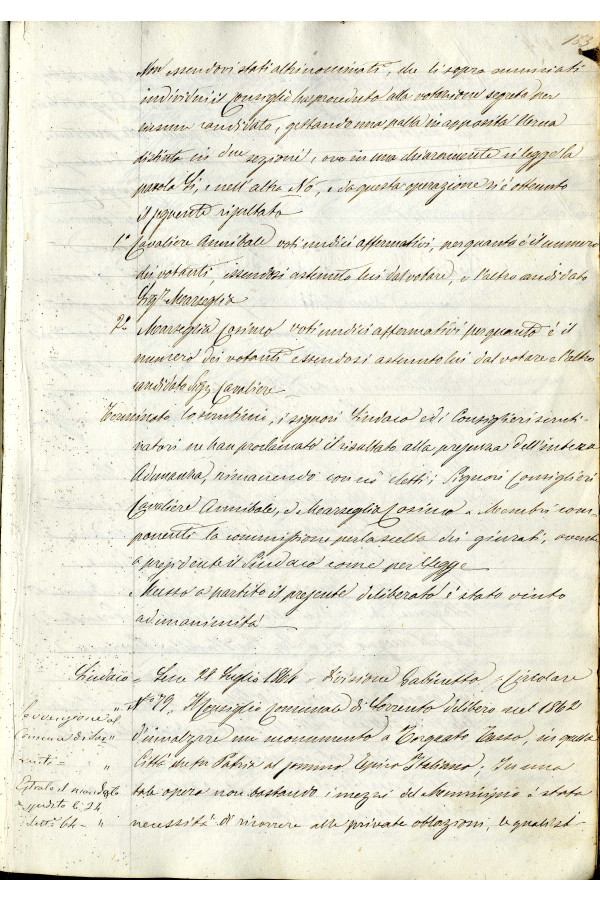 163
Non essendovi stati altri nominati, che li sopra nunciati
individui il Consiglio ha proceduto alla votazione segreta per
ciascun candidato, gettando una palla in apposita Urna
distinta in due sezioni, ove in una chiaramente si legge la
parola Si, e nell'altra No, e da questa operazione si è ottenuto
il seguente risultato
1° Cavaliere Annibale voti undici affermativi, per quanto è il numero
dei votanti, essendosi astenuto lui dal votare, e l'altro candidato
Sigr Marseglia
2° Marseglia Cosimo voti undici affermativi per quanto è il
numero dei votanti essendosi astenuto lui dal votare e l'altro
candidato Sigr Cavaliere
Terminato lo scrutinio, i signori Sindaco ed i Consiglieri scruti-
natori ne han proclamato il risultato alla presenza dell'intera
Adunanza, rimanendo con ciò eletti i Signori Consiglieri
Cavaliere Annibale, e Marseglia Cosimo a Membri com-
ponenti la commissione per la scelta dei giurati, avente
a presidente il Sindaco come per legge
Messo a partito il presente deliberato è stato vinto
ad unanimità
Sindaco = Lecce 28 Luglio 1864 = Divisione Gabinetto = Circolare
N° 79, Il Consiglio Comunale di Sorrento deliberò nel 1862
d'innalzare un monumento a Torquato Tasso, in quella
Città che fu Patria al sommo Epico Italiano, In una
tale opera non bastando i mezzi del Municipio è stata
necessità di ricorrere alle private oblazioni, le quali si-
Sovvenzione al
Comune di Sor-
rento =
Estratto il mandato
spedito li 24
detti 64 =